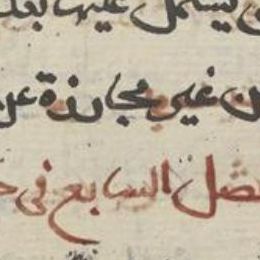 يشتمل عليها بعد
من غير مجارزة عن
الفصل السابع فى